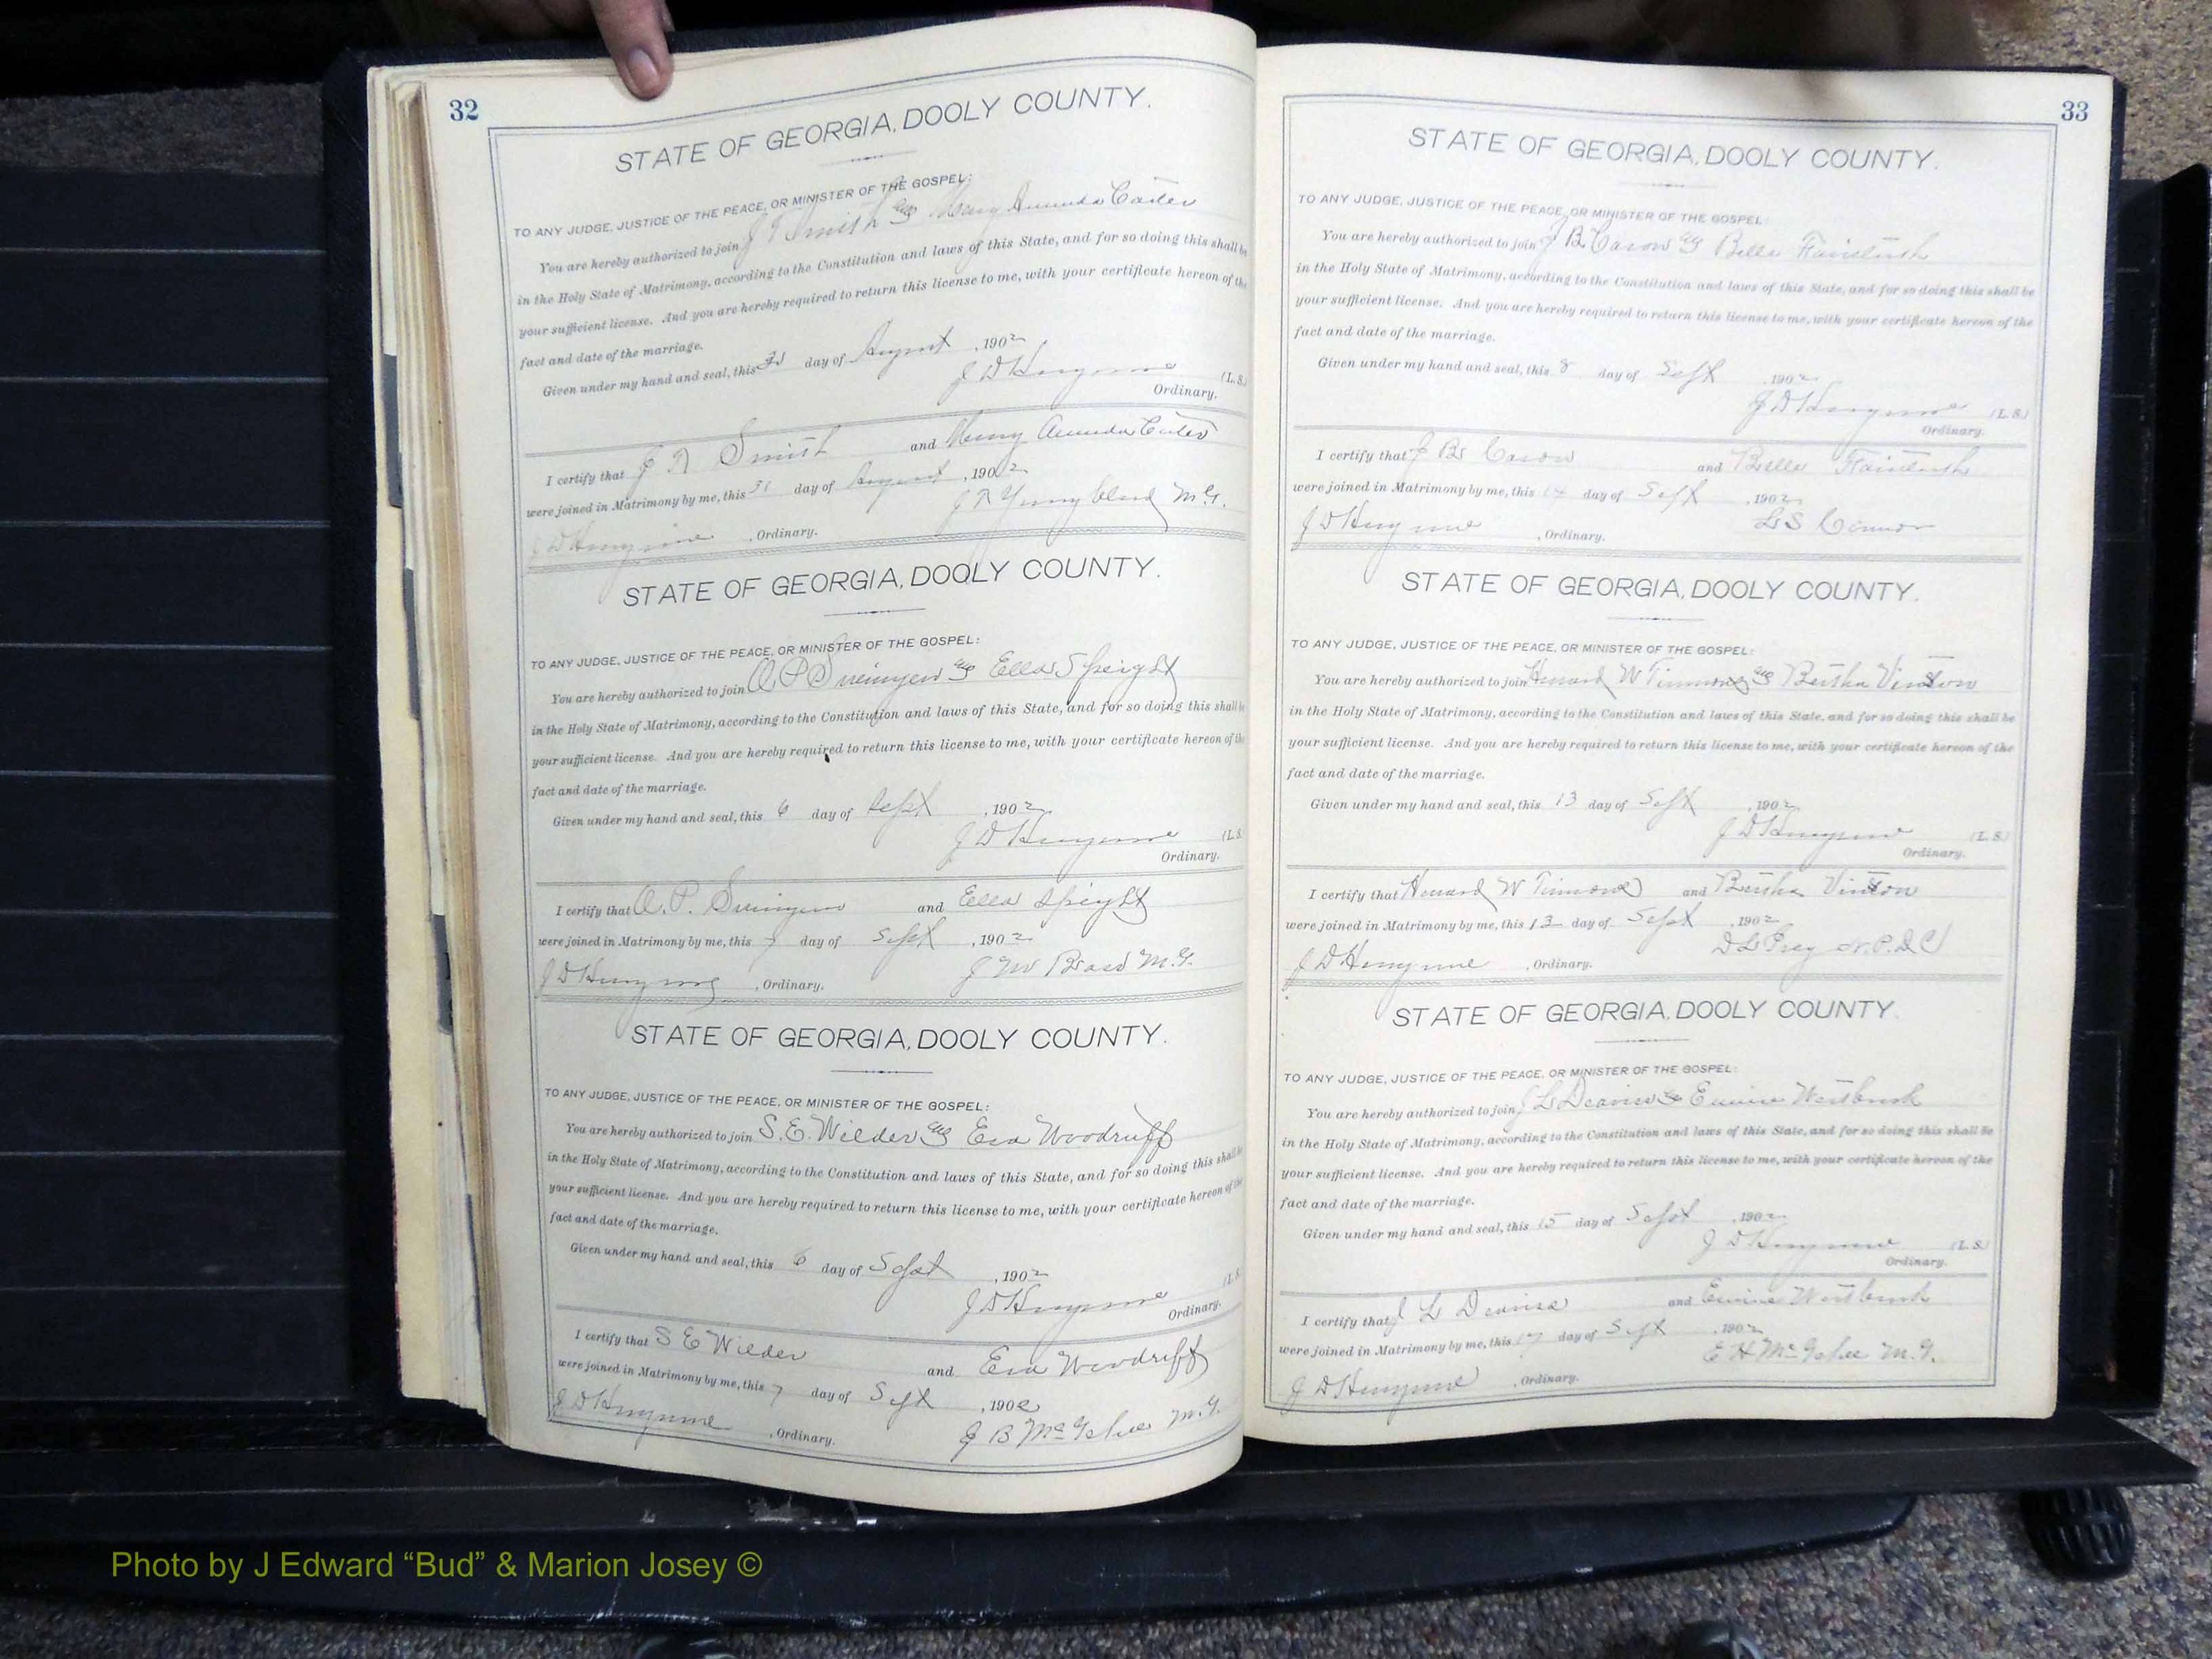 32
STATE OF GEORGIA, DOOLY COUNTY.
TO ANY JUDGE, JUSTICE OF THE PEACE, OR MINISTER OF THE GOSPEL:
You are hereby authorized to join J Smith & Mary Amanda Carter
in the Holy State of Matrimony, according to the Constitution and laws of this State, and for so doing this shall be
your sufficient license. And you are hereby required to return this license to me, with your certificate hereon of the
fact and date of the marriage.
Given under my hand and seal, this 31 day of August, 1902
J D (L. S.)
Ordinary.
I certify that J Smith and Mary Amanda Carter
were joined in Matrimony by me, this 31 day of August, 1902
J Youngblood M.G.
J D , Ordinary.
STATE OF GEORGIA, DOOLY COUNTY.
TO ANY JUDGE, JUSTICE OF THE PEACE, OR MINISTER OF THE GOSPEL:
You are hereby authorized to join O P Swearingen & Ella Speight
in the Holy State of Matrimony, according to the Constitution and laws of this State, and for so doing this shall be
your sufficient license. And you are hereby required to return this license to me, with your certificate hereon of the
fact and date of the marriage.
Given under my hand and seal, this 6 day of Sept, 1902
J D (L. S.
Ordinary.
I certify that O. P. and Ella Speight
were joined in Matrimony by me, this 7 day of Sept, 1902
J W M.G.
J D , Ordinary.
STATE OF GEORGIA, DOOLY COUNTY.
TO ANY JUDGE, JUSTICE OF THE PEACE, OR MINISTER OF THE GOSPEL:
You are hereby authorized to join S. E. Wilder & Eva Woodruff
in the Holy State of Matrimony, according to the Constitution and laws of this State, and for so doing this shall be
your sufficient license. And you are hereby required to return this license to me, with your certificate hereon of the
fact and date of the marriage.
Given under my hand and seal, this 6 day of Sept, 1902
J D (L. S.
Ordinary.
I certify that S E Wilder and Eva Woodruff
were joined in Matrimony by me, this 7 day of Sept, 1902
J B McGehee M.G.
J D , Ordinary.
33
STATE OF GEORGIA, DOOLY COUNTY.
TO ANY JUDGE, JUSTICE OF THE PEACE, OR MINISTER OF THE GOSPEL:
You are hereby authorized to join J B Cason & Belle Faircloth
in the Holy State of Matrimony, according to the Constitution and laws of this State, and for so doing this shall be
your sufficient license. And you are hereby required to return this license to me, with your certificate hereon of the
fact and date of the marriage.
Given under my hand and seal, this 8 day of Sept, 1902
J D (L. S.)
Ordinary.
I certify that J B Cason and Belle Faircloth
were joined in Matrimony by me, this 14 day of Sept, 1902
L S Connor
J D , Ordinary.
STATE OF GEORGIA, DOOLY COUNTY.
TO ANY JUDGE, JUSTICE OF THE PEACE, OR MINISTER OF THE GOSPEL:
You are hereby authorized to join Howard W Timmons & Bertha Vinson
in the Holy State of Matrimony, according to the Constitution and laws of this State, and for so doing this shall be
your sufficient license. And you are hereby required to return this license to me, with your certificate hereon of the
fact and date of the marriage.
Given under my hand and seal, this 13 day of Sept, 1902
J D (L. S.)
Ordinary.
I certify that Howard W Timmons and Bertha Vinson
were joined in Matrimony by me, this 13 day of Sept, 1902
D L N.P.D.C
J D , Ordinary.
STATE OF GEORGIA, DOOLY COUNTY.
TO ANY JUDGE, JUSTICE OF THE PEACE, OR MINISTER OF THE GOSPEL:
You are hereby authorized to join J L & Westbrook
in the Holy State of Matrimony, according to the Constitution and laws of this State, and for so doing this shall be
your sufficient license. And you are hereby required to return this license to me, with your certificate hereon of the
fact and date of the marriage.
Given under my hand and seal, this 15 day of Sept, 1902
J D (L. S.)
Ordinary.
I certify that J L and Westbrook
were joined in Matrimony by me, this 17 day of Sept, 1902
E H McGehee M.G.
J D , Ordinary.
Photo by J Edward “Bud” & Marion Josey ©